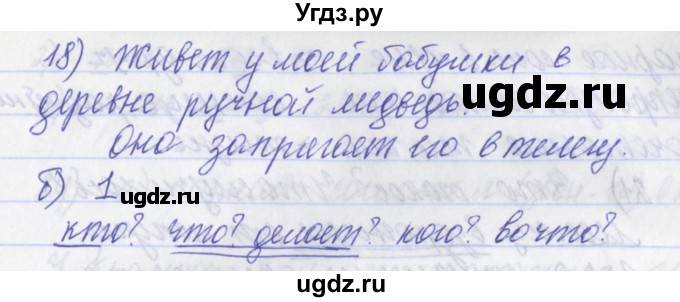 Угдз.ру
18) Живет у моей бабушки в
деревне ручной медведь.
угдз.ру
Она запрягает его в телегу.
б) 1
ugdz.ru
кто? что? делает? кого? во что?
ugdz.ru
ugdz.ru